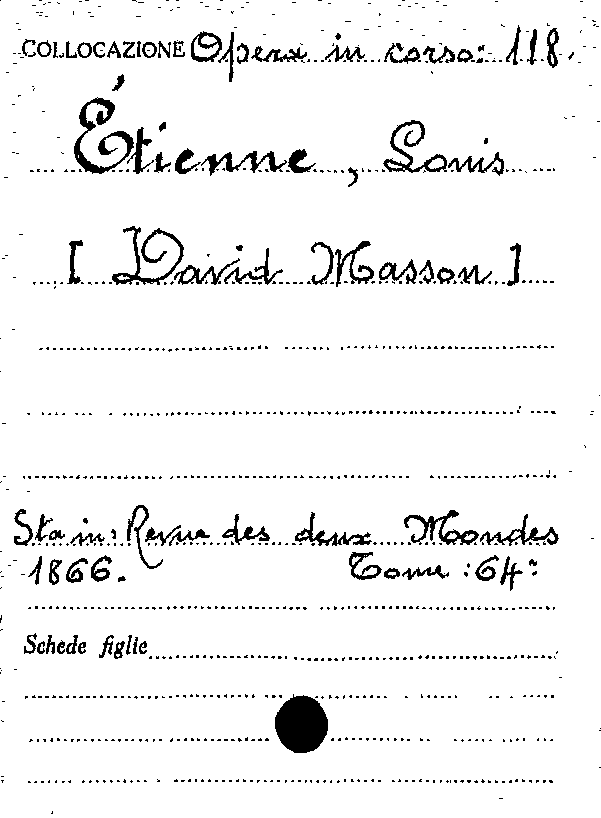 COLLOCAZIONE Opera in corso: 118.
Étienne, Louis
[David Masson]
Sta in: Revue des deux Mondes
1866. Tome: 64º
Schede figlie